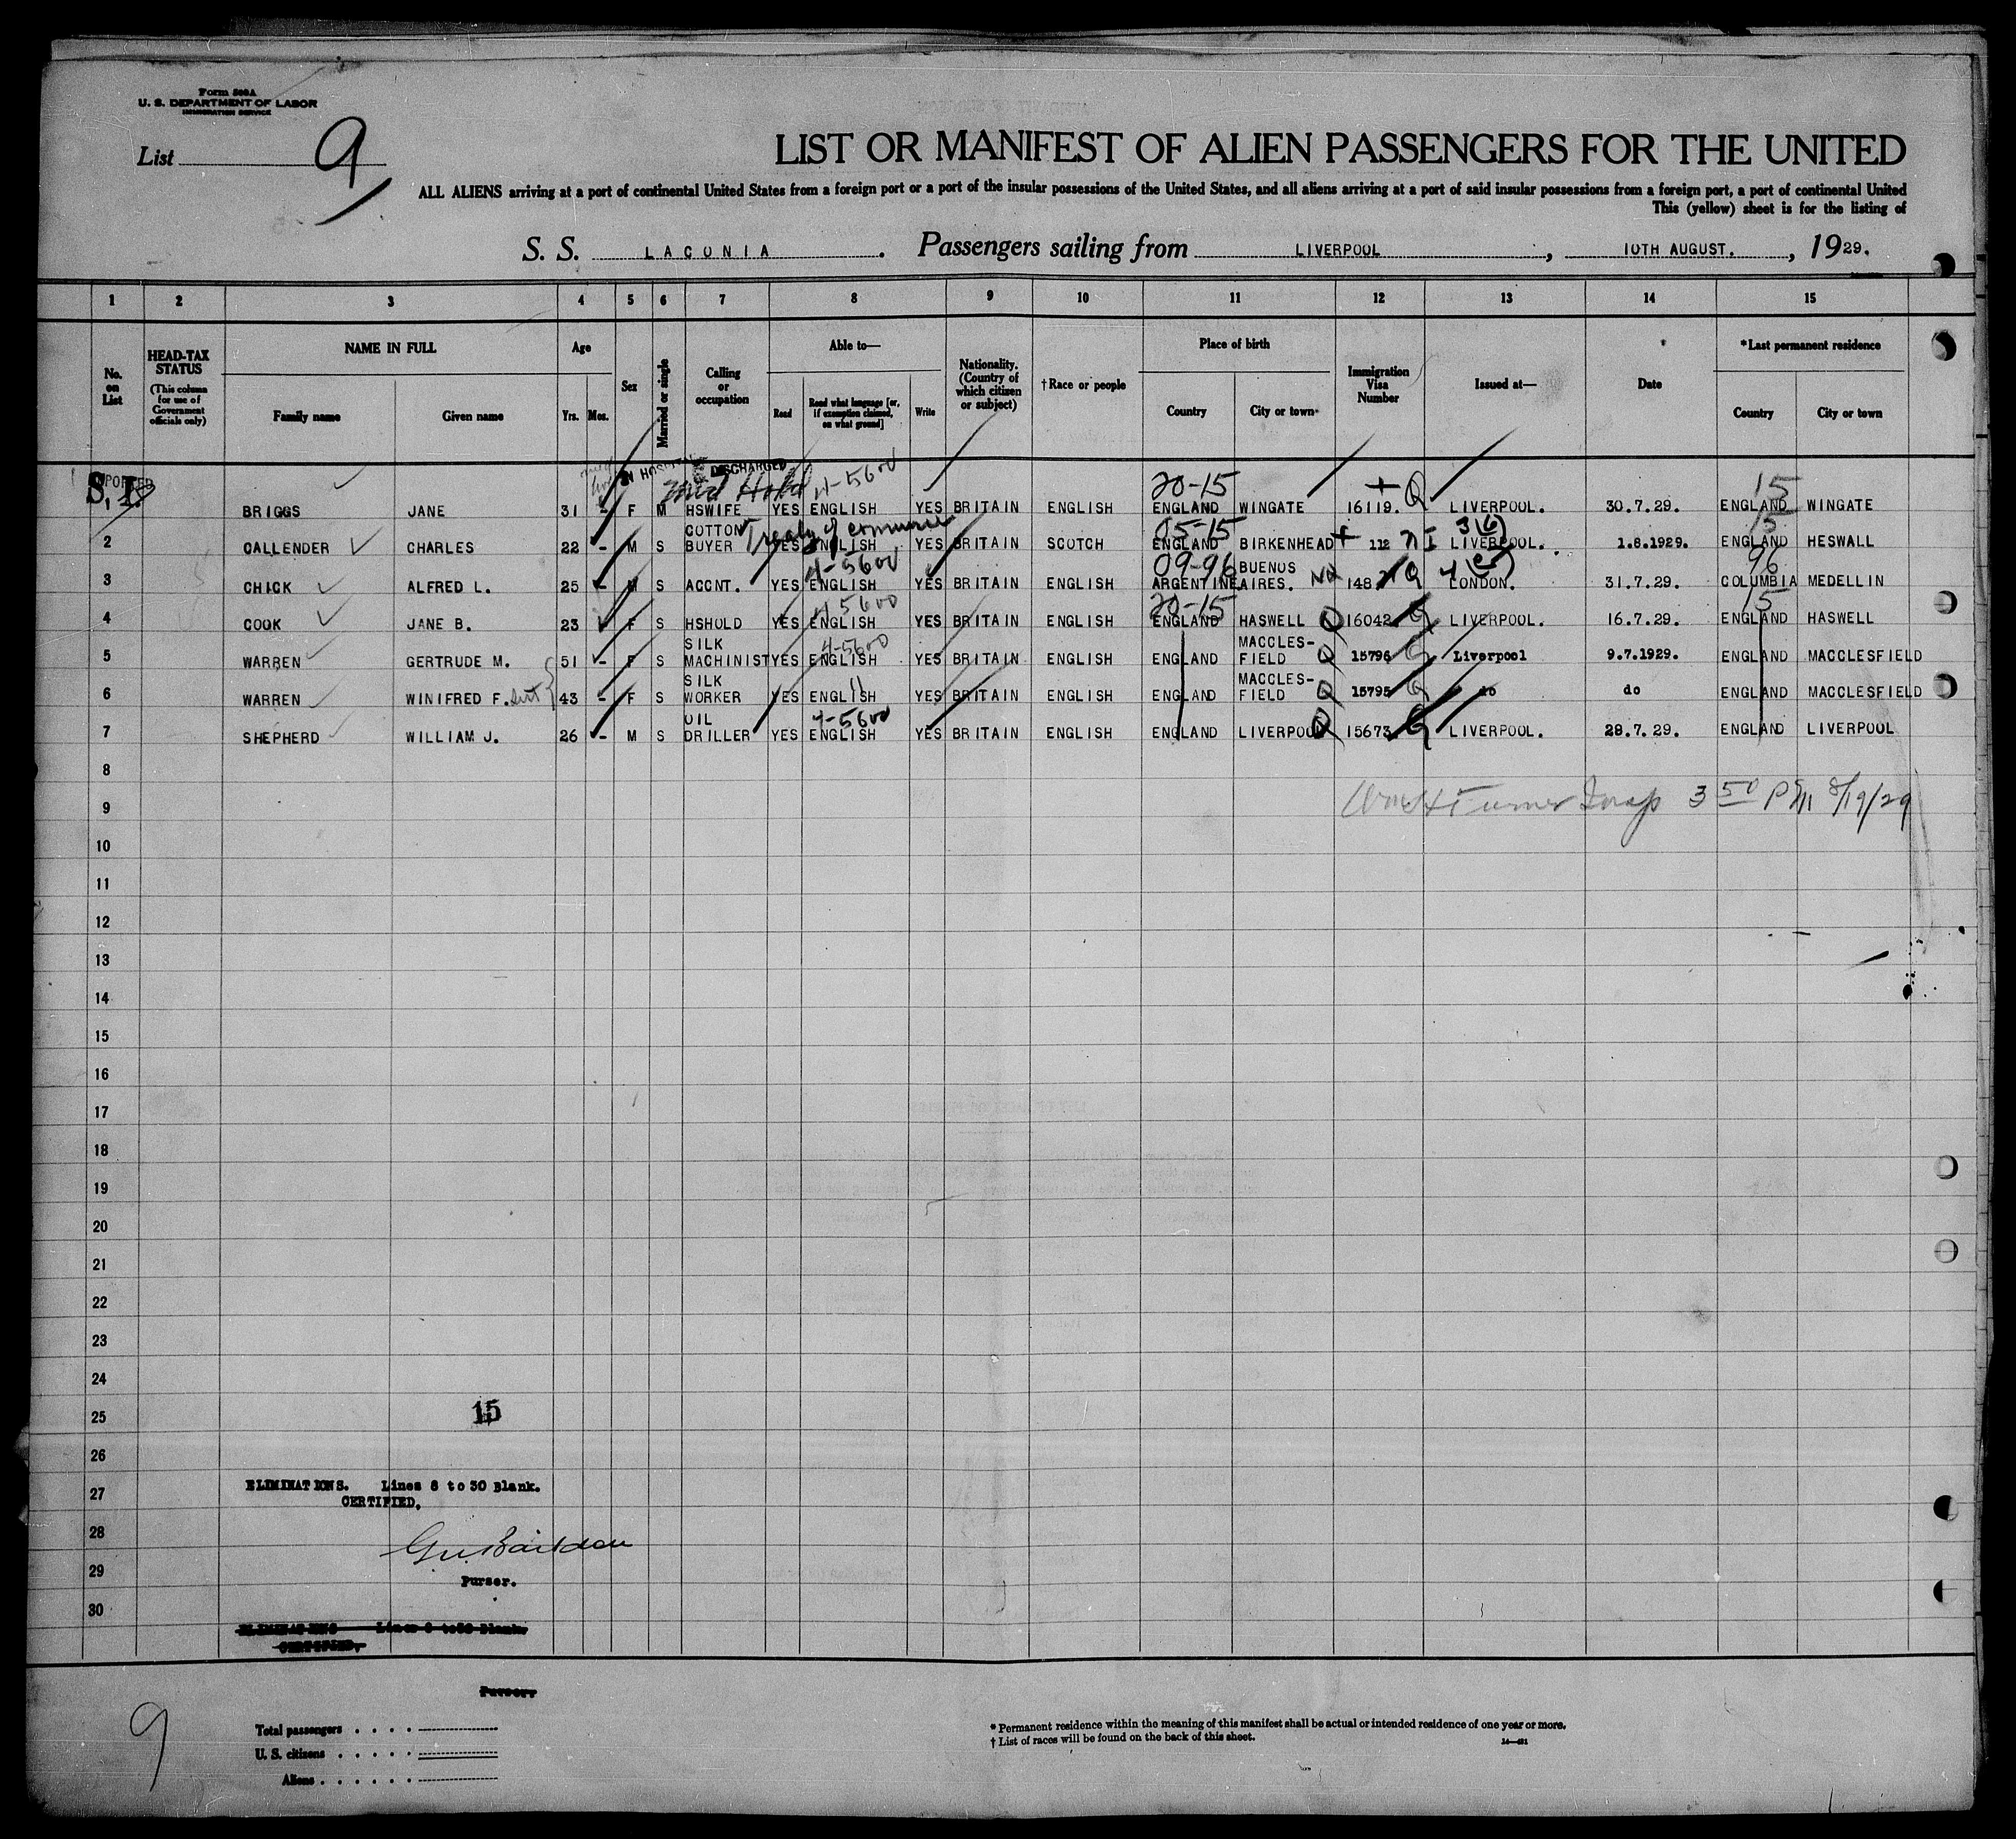 Form 500A
U. S. DEPARTMENT OF LABOR
IMMIGRATION SERVICE
List 9
LIST OR MANIFEST OF ALIEN PASSENGERS FOR THE UNITED
ALL ALIENS arriving at a port of continental United States from a foreign port or a port of the insular possessions of the United States, and all aliens arriving at a port of said insular possessions from a foreign port, a port of continental United
This (yellow) sheet is for the listing of
S. S. LACONIA. Passengers sailing from LIVERPOOL, 10TH AUGUST., 1929.
1 2 3 4 5 6 7 8 9 10 11 12 13 14 15
No. on List
HEAD-TAX STATUS
(This column for use of Government officials only)
NAME IN FULL
Family name Given name
Age
Yrs. Mos.
Sex
Married or single
Calling or occupation
Able to—
Read
Read what language [or, if exemption claimed, on what ground]
Write
Nationality. (Country of which citizen or subject)
†Race or people
Place of birth
Country City or town
Immigration Visa Number
Issued at—
Date
*Last permanent residence
Country City or town
S.I. IN HOSPITAL DISCHARGED
Med Hold 4-5600 20-15 + Q 15
BRIGGS JANE 31 - F M HSWIFE YES ENGLISH YES BRITAIN ENGLISH ENGLAND WINGATE 16119. LIVERPOOL. 30.7.29. ENGLAND WINGATE
Treaty of Commerce 05-15 3(6) 15
2 CALLENDER CHARLES 22 - M S COTTON BUYER YES ENGLISH YES BRITAIN SCOTCH ENGLAND BIRKENHEAD 112 LIVERPOOL. 1.8.1929. ENGLAND HESWALL
4-5600 09-96 NQ 4(e) 96
3 CHICK ALFRED L. 25 - M S ACCNT. YES ENGLISH YES BRITAIN ENGLISH ARGENTINE BUENOS AIRES. 148 LONDON. 31.7.29. COLUMBIA MEDELLIN
4-5600 20-15 15
4 COOK JANE B. 23 F S HSHOLD YES ENGLISH YES BRITAIN ENGLISH ENGLAND HASWELL Q 16042 Q LIVERPOOL. 16.7.29. ENGLAND HASWELL
4-5600
5 WARREN GERTRUDE M. 51 - F S SILK MACHINIST YES ENGLISH YES BRITAIN ENGLISH ENGLAND MACCLES-FIELD Q 15796 Q Liverpool 9.7.1929. ENGLAND MACCLESFIELD
6 WARREN WINIFRED F. 43 - F S SILK WORKER YES ENGLISH YES BRITAIN ENGLISH ENGLAND MACCLES-FIELD Q 15795 Q do do ENGLAND MACCLESFIELD
4-5600
7 SHEPHERD WILLIAM J. 26 - M S OIL DRILLER YES ENGLISH YES BRITAIN ENGLISH ENGLAND LIVERPOOL Q 15673 Q LIVERPOOL. 28.7.29. ENGLAND LIVERPOOL
8
9 Turner Insp 3 50 PM 8/19/29
10
11
12
13
14
15
16
17
18
19
20
21
22
23
24
25 15
26
27 ELIMINATIONS. Lines 8 to 30 Blank.
CERTIFIED.
28
29 Purser.
30
ELIMINATIONS Lines 8 to 30 Blank.
CERTIFIED.
Purser.
9
Total passengers
U. S. citizens
Aliens
* Permanent residence within the meaning of this manifest shall be actual or intended residence of one year or more.
† List of races will be found on the back of this sheet.